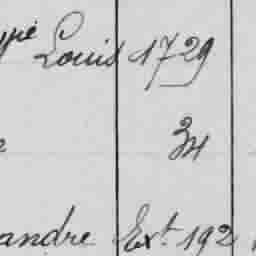 Louis 1729
34
andre Ext. 192